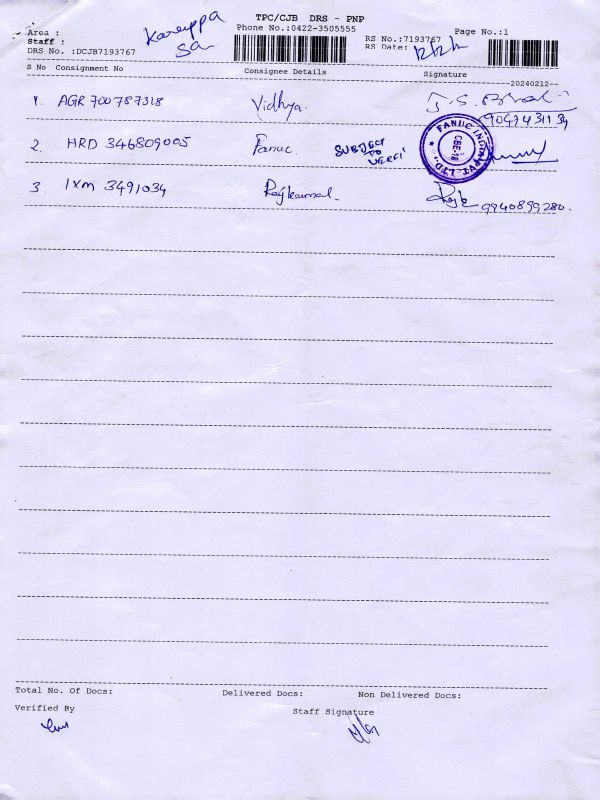 TPC/CJB DRS - PNP
Area :
Staff :
Kareyppa
Phone No.:0422-3505555
RS No.:7193767
Page No.:1
DRS No. :DCJB7193767
RS Date:
S No Consignment No Consignee Details Signature
20240212
1. AGR 700787318 Vidhya.
2. HRD 346809005 Fanuc. SUBJECT TO
FANUC INDIA PVT. LTD.,
CBE-18
3. Ixm 3491034 Rajkamal. 9940899280.
Total No. Of Docs: Delivered Docs: Non Delivered Docs:
Verified By Staff Signature